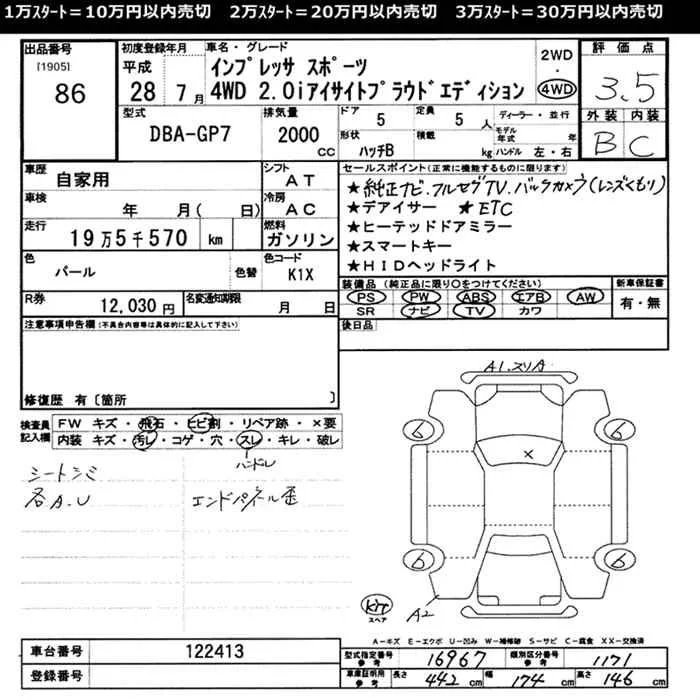 1万スタート=10万円以内売切 2万スタート=20万円以内売切 3万スタート=30万円以内売切
出品番号
[1905]
86
初度登録年月
平成
28年7月
車名・グレード
インプレッサ スポーツ
4WD 2.0iアイサイトプラウドエディション
2WD
・
4WD
評価点
3.5
外装 内装
B C
型式
DBA-GP7
排気量
2000
cc
ドア
5
定員
5人
ディーラー・並行
形状
ハッチB
積載
kg
モデル年式 年
ハンドル 左・右
車歴
自家用
シフト
AT
車検
年 月( 日)
冷房
AC
走行
19万5千570 km
燃料
ガソリン
色
パール
色替
色コード
K1X
R券
12,030円
名変通知期限
月 日
セールスポイント(正常に機能するものに限ります)
★純正ナビ.フルセグTV.バックカメラ(レンズくもり)
★デアイサー ★ETC
★ヒーテッドドアミラー
★スマートキー
★HIDヘッドライト
装備品 (純正品に限り○をつけてください)
PS PW ABS エアB AW
SR ナビ TV カワ
新車保証書
有・無
後日品
注意事項申告欄(不具合内容等は具体的に記入して下さい)
修復歴 有〔箇所 〕
検査員
記入欄
FW キズ・飛石・ヒビ割・リペア跡・×要
内装 キズ・汚レ・コゲ・穴・スレ・キレ・破レ
ハンドル
シートシミ
各A.U エンドパネル歪
A1.スリA
6
6
×
6
6
A2
スペア
A-キズ E-エクボ U-凹み W-補修跡 S-サビ C-腐食 XX-交換済
車台番号
122413
登録番号
型式指定番号
参考
16967
類別区分番号
参考
1171
車庫証明用
参考
長さ 442 cm
幅 174 cm
高さ 146 cm